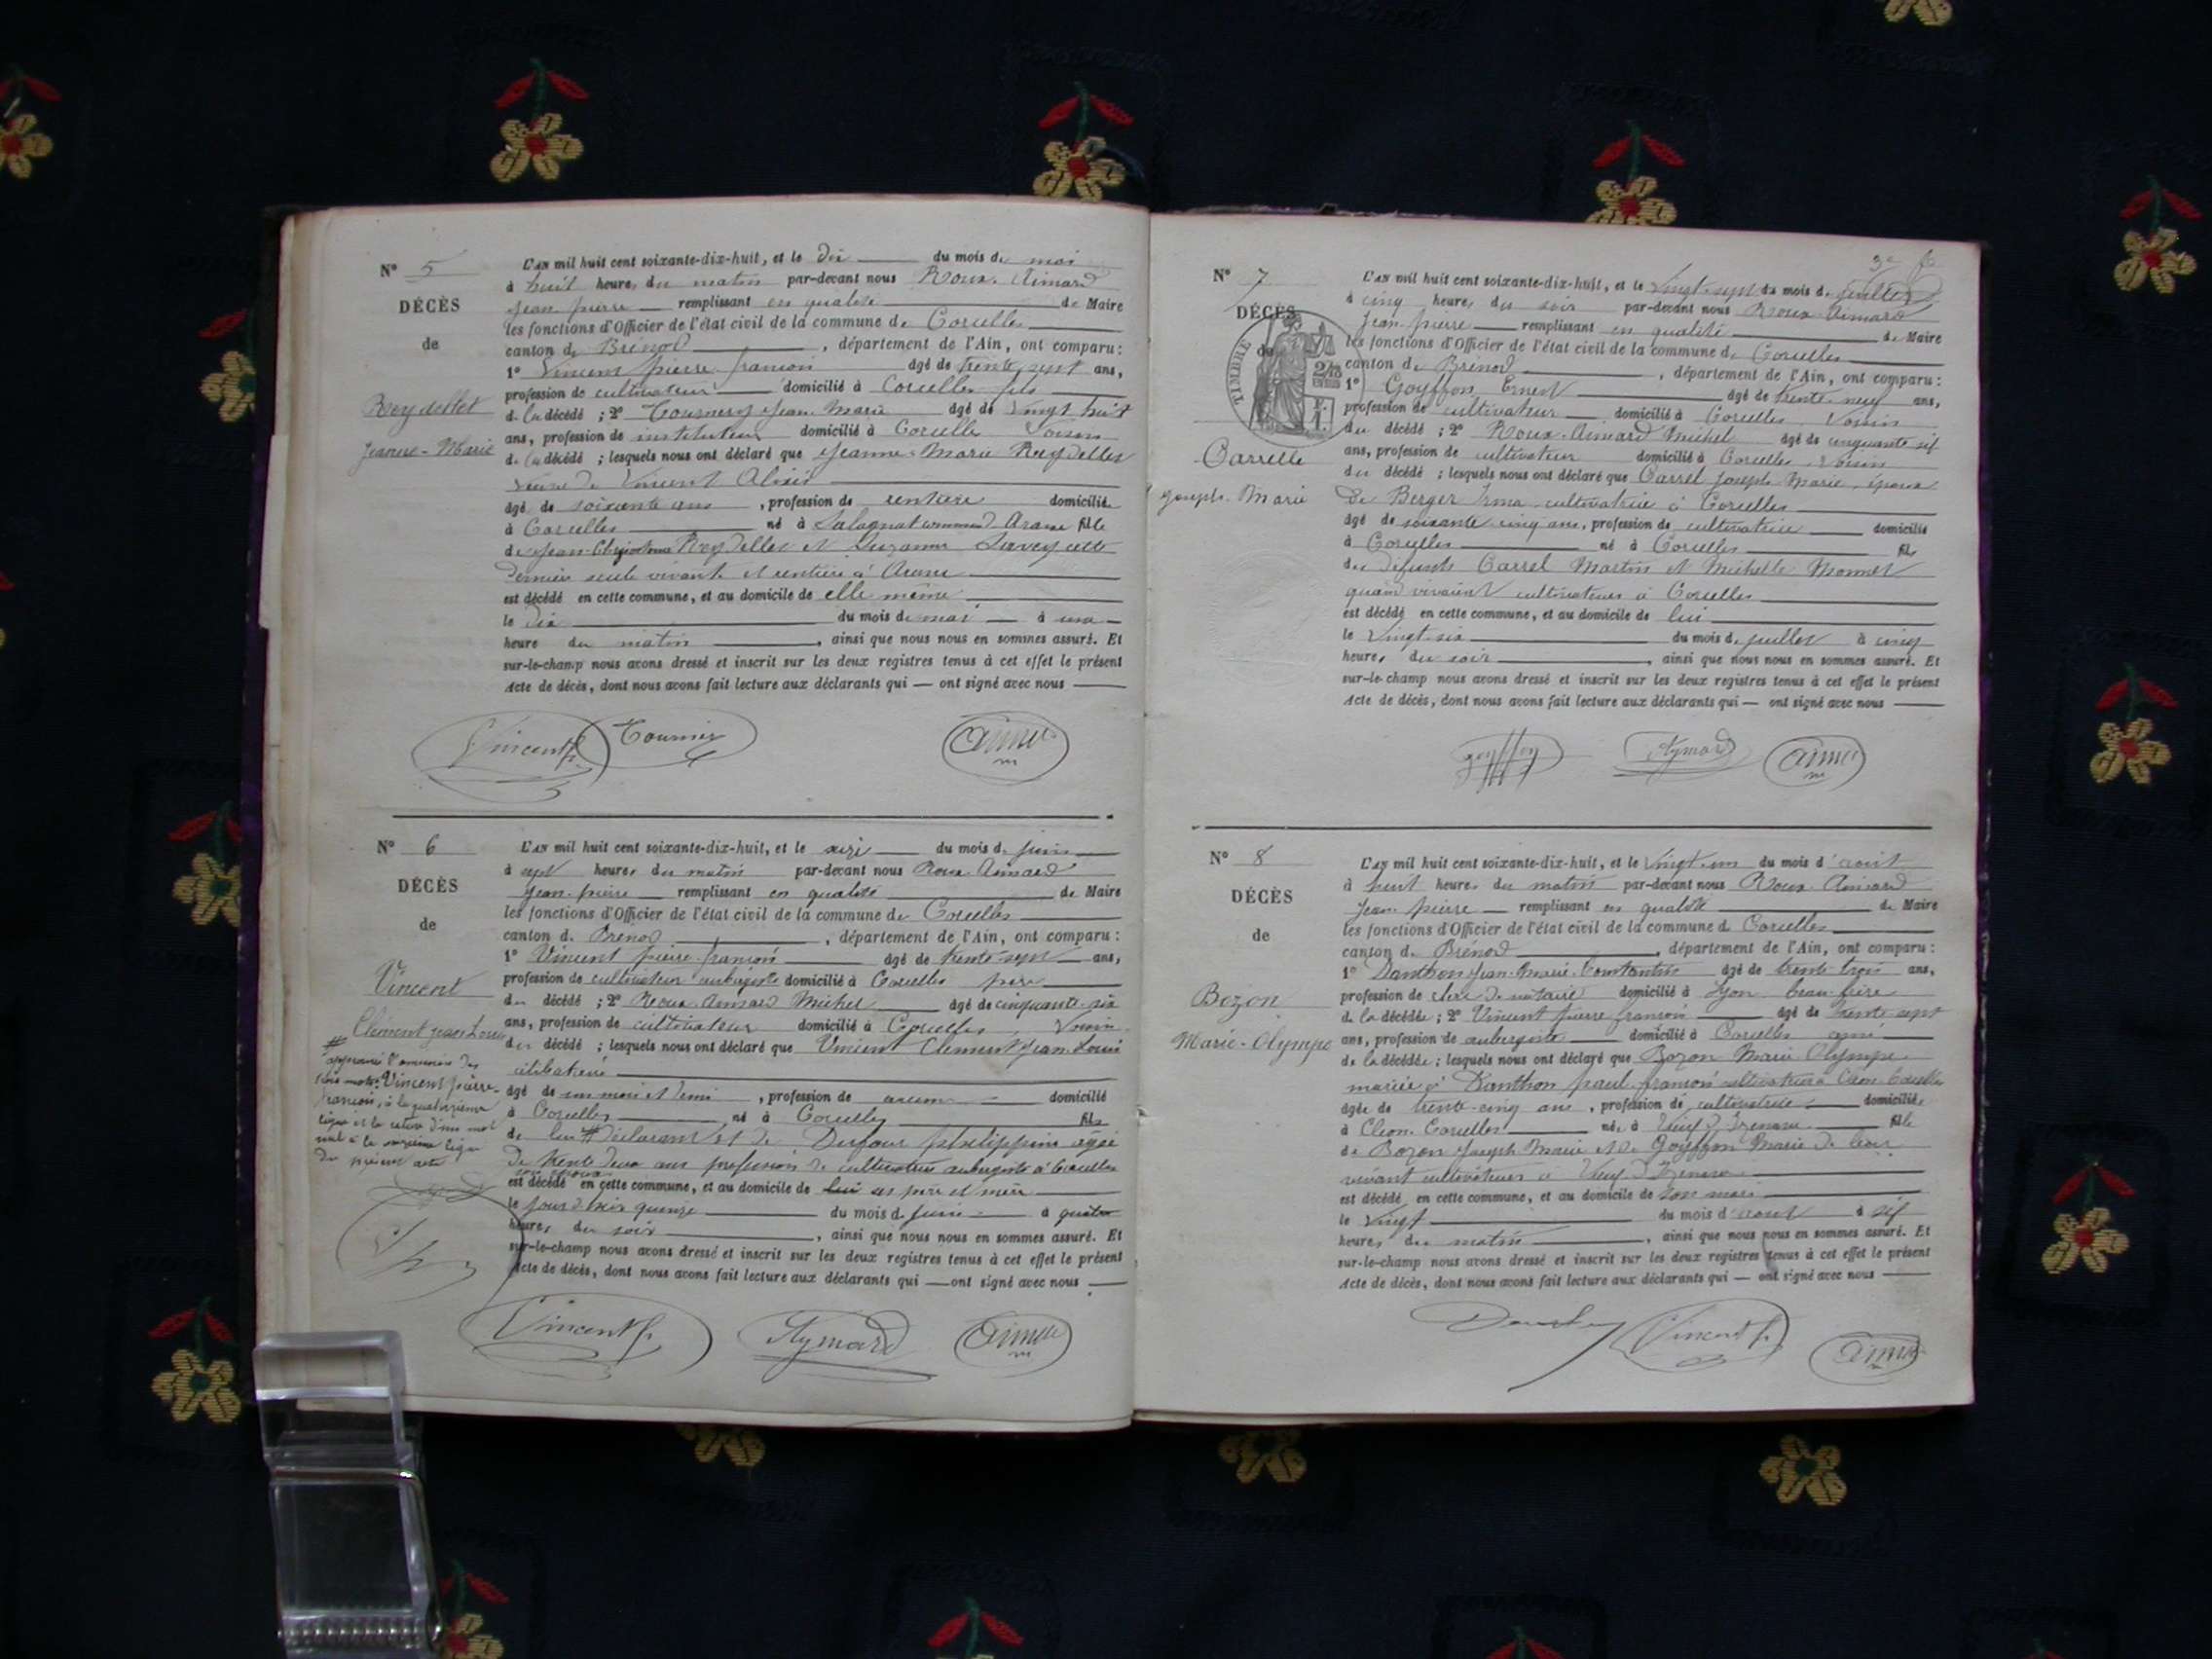 N° 5
DÉCÈS
de
Reydellet
Jeanne-Marie
L'AN mil huit cent soixante-dix-huit, et le dix du mois de mai
à huit heures du matin par-devant nous Roux-Aimard
Jean-pierre remplissant en qualité de Maire
les fonctions d'Officier de l'état civil de la commune de Corcelles
canton de Brénod, département de l'Ain, ont comparu:
1° Vincent pierre françois âgé de trente sept ans,
profession de cultivateur domicilié à Corcelles fils
de la décédé; 2° Tournery Jean Marie âgé de vingt huit
ans, profession de instituteur domicilié à Corcelle voisin
de la décédé; lesquels nous ont déclaré que Jeanne-Marie Reydellet
veuve de Vincent
âgé de soixante ans, profession de rentière domicilié
à Corcelles né à commune d'Arane fille
de Jean Reydellet et Suzanne cette
dernière seule vivante et rentière à Arane
est décédé en cette commune, et au domicile de elle même
le dix du mois de mai à une
heure du matin, ainsi que nous nous en sommes assuré. Et
sur-le-champ nous avons dressé et inscrit sur les deux registres tenus à cet effet le présent
Acte de décès, dont nous avons fait lecture aux déclarants qui — ont signé avec nous
Vincent p. Tournier Aimar
N° 6
DÉCÈS
de
Vincent
Clément jean Louis
L'AN mil huit cent soixante-dix-huit, et le seize du mois de juin
à sept heures du matin par-devant nous Roux-Aimard
Jean-pierre remplissant en qualité de Maire
les fonctions d'Officier de l'état civil de la commune de Corcelles
canton de Brénod, département de l'Ain, ont comparu:
1° Vincent pierre-françois âgé de trente-sept ans,
profession de cultivateur aubergiste domicilié à Corcelles père
du décédé; 2° Roux-Aimard Michel âgé de cinquante-six
ans, profession de cultivateur domicilié à Corcelles, voisin
du décédé; lesquels nous ont déclaré que Vincent Clément Jean-Louis
célibataire
âgé de un mois et demi, profession de aucune domicilié
à Corcelles né à Corcelles fils
de lui # déclarant et de Dufour philippine agée
de trente deux ans profession de cultivatrice aubergiste à Corcelles
son épouse
est décédé en cette commune, et au domicile de lui ses père et mère
le jour d'hier quinze du mois de juin à quatre
heures du soir, ainsi que nous nous en sommes assuré. Et
sur-le-champ nous avons dressé et inscrit sur les deux registres tenus à cet effet le présent
Acte de décès, dont nous avons fait lecture aux déclarants qui — ont signé avec nous
# approuvé l'omission des
trois mots: Vincent pierre-
françois, à la quatorzième
ligne et la rature d'un mot
nul à la ligne
du présent acte
Vincent p. Aymard Aimar
N° 7
DÉCÈS
de
TIMBRE
Carrelle
joseph-Marie
L'AN mil huit cent soixante-dix-huit, et le vingt-sept du mois de juillet
à cinq heures du soir par-devant nous Roux-Aimard
Jean-pierre remplissant en qualité de Maire
les fonctions d'Officier de l'état civil de la commune de Corcelles
canton de Brénod, département de l'Ain, ont comparu:
1° Goyffon Ernest âgé de trente-neuf ans,
profession de cultivateur domicilié à Corcelles voisin
du décédé; 2° Roux-Aimard Michel âgé de cinquante six
ans, profession de cultivateur domicilié à Corcelles voisin
du décédé; lesquels nous ont déclaré que Carrel Joseph-Marie, époux
de Berger Irma cultivatrice à Corcelles
âgé de soixante-cinq ans, profession de cultivatrice domicilié
à Corcelles né à Corcelles fils
de défunts Carrel Martin et Michelle Monnet
quand vivaient cultivateurs à Corcelles
est décédé en cette commune, et au domicile de lui
le vingt-six du mois de juillet à cinq
heures du soir, ainsi que nous nous en sommes assuré. Et
sur-le-champ nous avons dressé et inscrit sur les deux registres tenus à cet effet le présent
Acte de décès, dont nous avons fait lecture aux déclarants qui — ont signé avec nous
goyffon Aymard Aimar
N° 8
DÉCÈS
de
Bozon
Marie-Olympe
L'AN mil huit cent soixante-dix-huit, et le vingt-un du mois d'août
à huit heures du matin par-devant nous Roux-Aimard
Jean-pierre remplissant en qualité de Maire
les fonctions d'Officier de l'état civil de la commune de Corcelles
canton de Brénod, département de l'Ain, ont comparu:
1° Danthon Jean-Marie-Constantin âgé de trente trois ans,
profession de clerc de notaire domicilié à Lyon beau-frère
de la décédée; 2° Vincent pierre françois âgé de trente-sept
ans, profession de aubergiste domicilié à Corcelles ami
de la décédée; lesquels nous ont déclaré que Bozon Marie Olympe
mariée à Danthon paul-françois cultivateur à Cléon Corcelles
âgée de trente-cinq ans, profession de cultivatrice domiciliée
à Cléon-Corcelles née à Vieu d'Izenave fille
de Bozon Joseph Marie et de Goyffon Marie de leur
vivant cultivateurs à Vieu d'Izenave
est décédé en cette commune, et au domicile de son mari
le vingt du mois d'août à six
heures du matin, ainsi que nous nous en sommes assuré. Et
sur-le-champ nous avons dressé et inscrit sur les deux registres tenus à cet effet le présent
Acte de décès, dont nous avons fait lecture aux déclarants qui — ont signé avec nous
Vincent p. Aimar